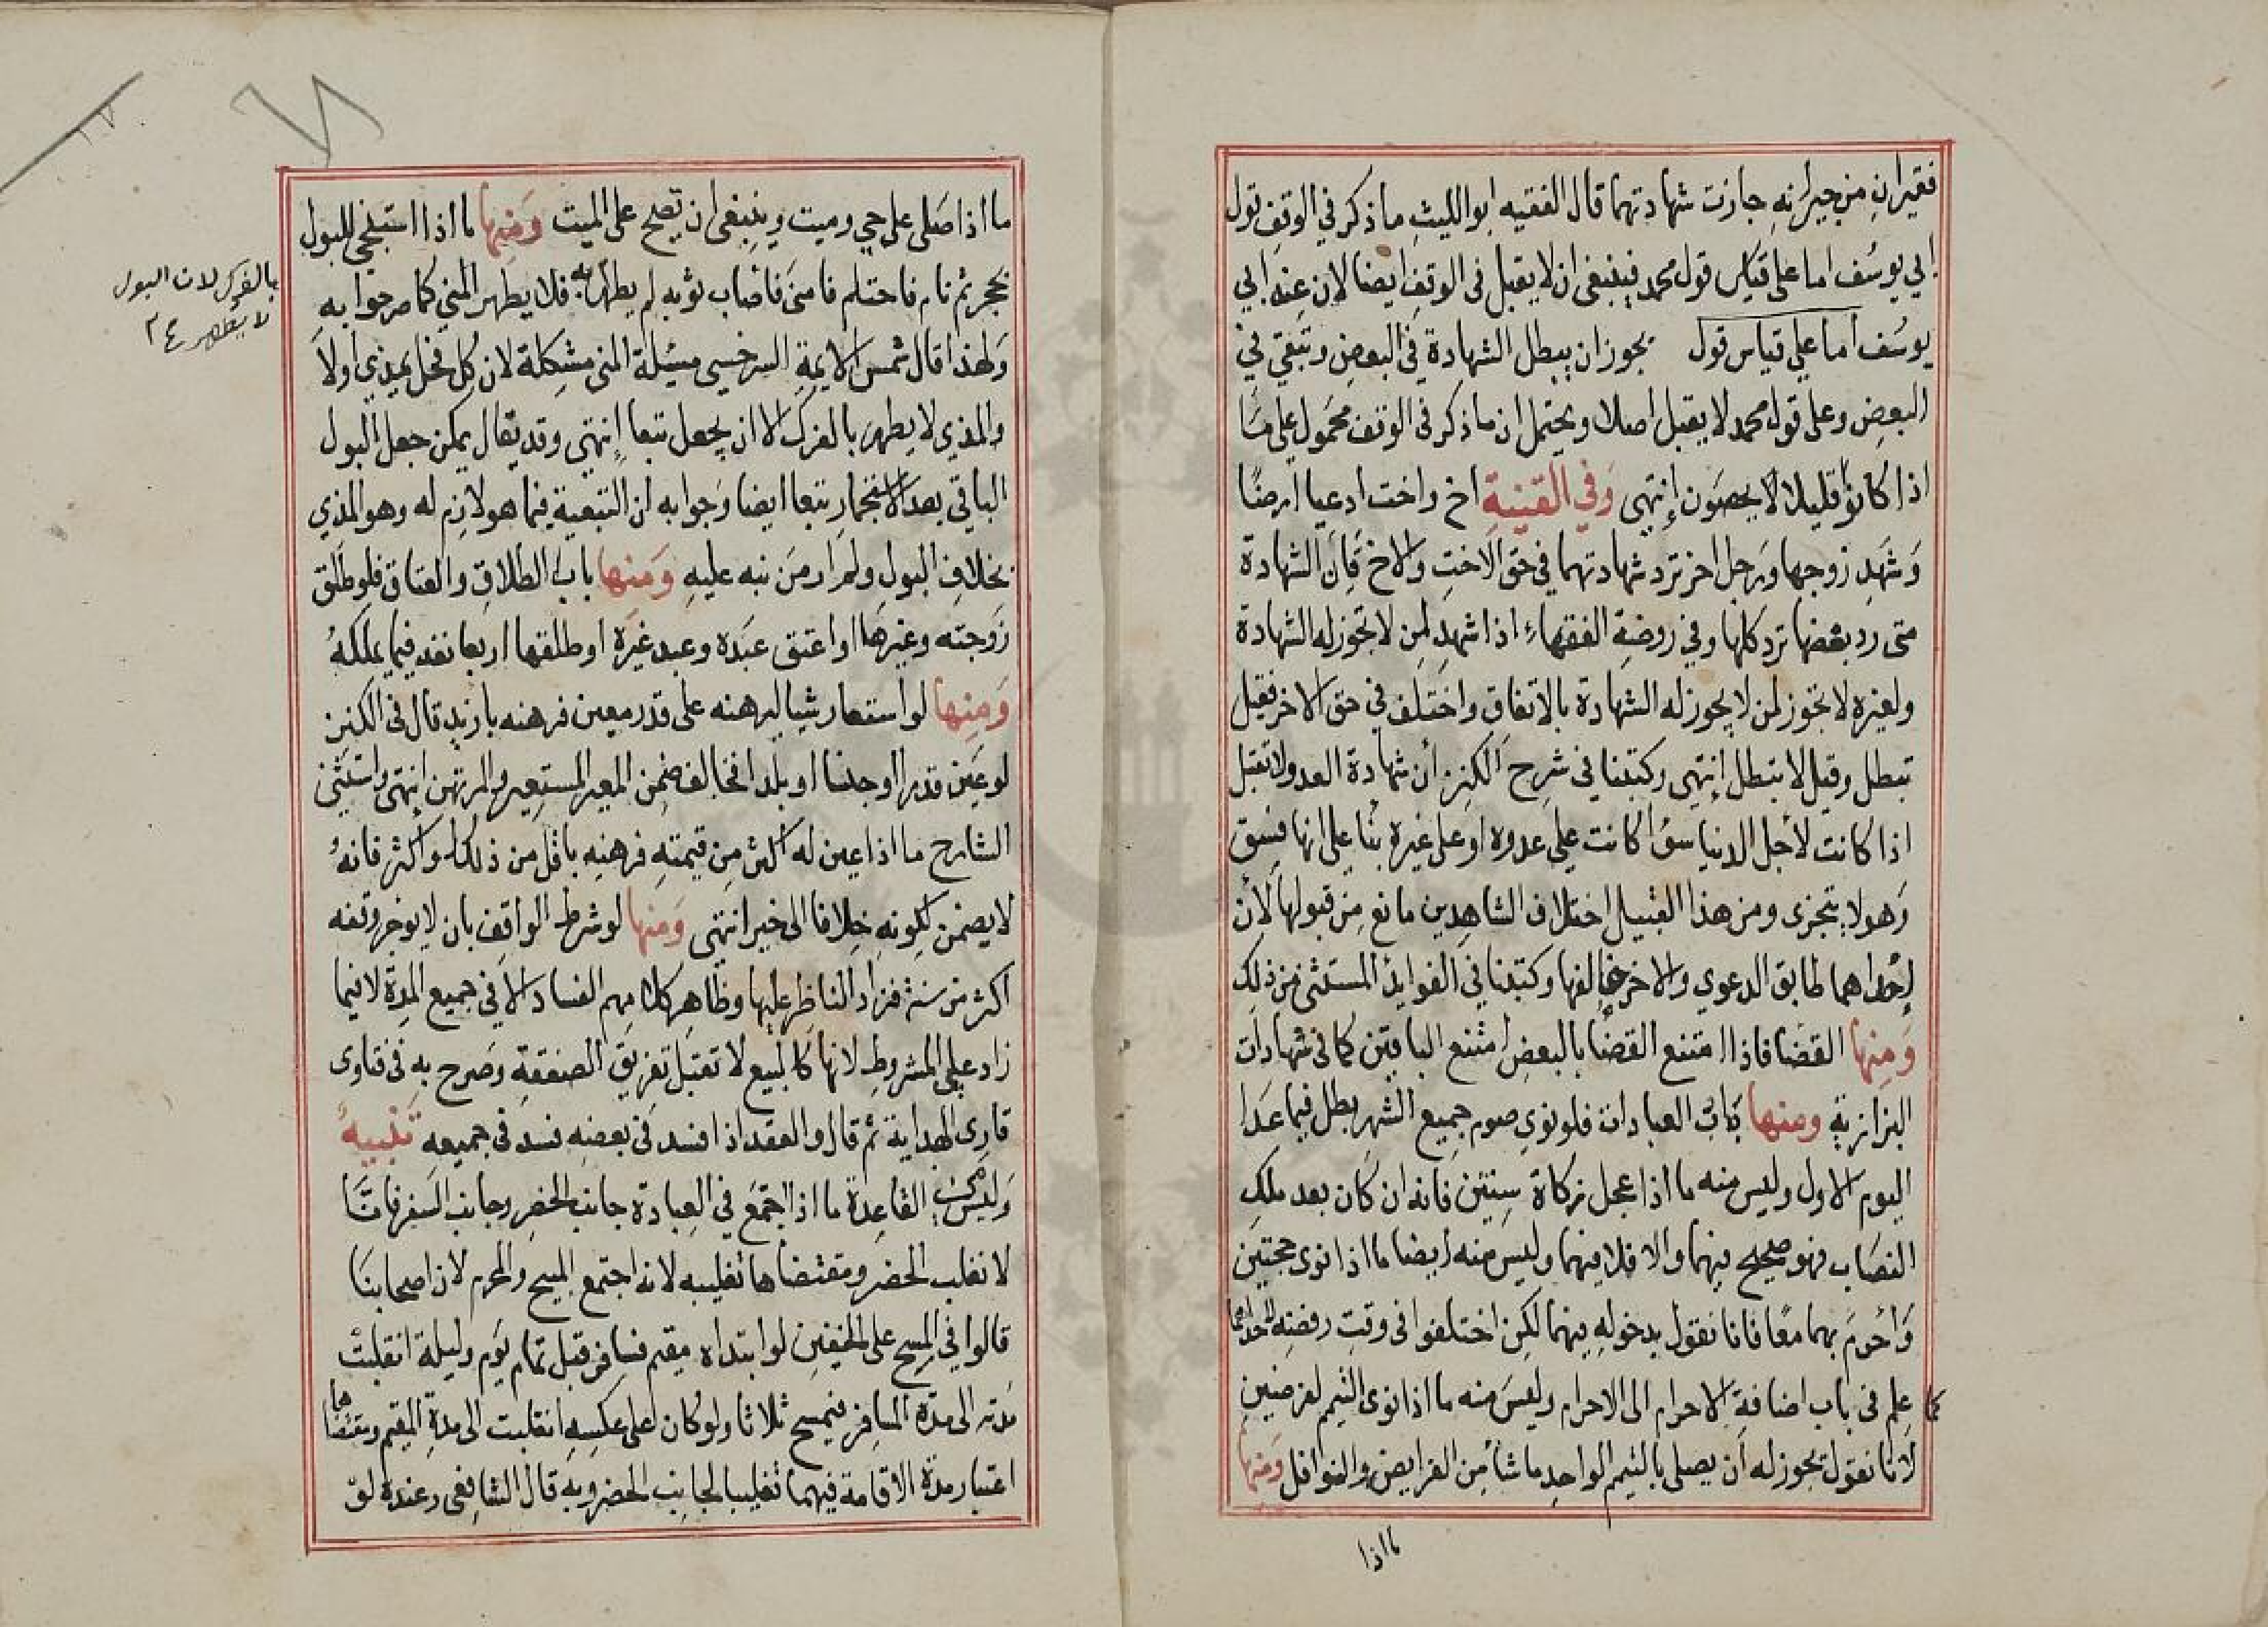 فقيران من جيرانه جازت شهادتهما قال الفقيه ابو الليث ما ذكر في الوقف قول
ابي يوسف اما على قياس قول محمد فينبغي ان لا يقبل في الوقف ايضا لان عند ابي
يوسف اما علي قياس قول يجوز ان يبطل الشهادة في البعض وتبقي في
البعض وعلى قول محمد لا يقبل اصلا ويحتمل ان ما ذكر في الوقف محمول علي ما
اذا كانوا قليلا لا يحصون إنتهى وفي القنية اخ واخت ادعيا ارضا
وشهد زوجها ورجل اخر ترد شهادتهما في حق الاخت والاخ فان الشهادة
متى رد بعضها ترد كلها وفي روضة الفقهاء اذا شهد لمن لا تجوز له الشهادة
ولغيره لا تجوز لمن لا يجوز له الشهادة بالاتفاق واختلف في حق الاخر فقيل
تبطل وقيل لا تبطل إنتهى وكتبنا في شرح الكنز أن شهادة العدو لا تقبل
اذا كانت لأجل الدنيا سوا كانت علي عدوه او على غيره بنا علي انها فسق
وهو لا يتجزى ومن هذا القبيل اختلاف الشاهدين مانع من قبولها لأن
إحداهما طابق الدعوي والاخر خالفها وكتبنا في الفوايد المستثنى من ذلك
ومنها القضا فاذا امتنع القضا بالبعض امتنع الباقين كما في شهادات
البزازية ومنها باب العبادات فلو نوي صوم جميع الشهر بطل فيما عدا
اليوم الاول وليس منه ما اذا عجل زكاة سنتين فانه ان كان بعد ملك
النصاب فهو صحيح فيهما والا فلا فيهما وليس منه أيضا ما اذا نوى حجتين
واحرم بهما معا فانا نقول بدخوله فيهما لكن اختلفوا في وقت رفضه لاحداهما
كما علم في باب اضافة الاحرام الى الاحرام وليس منه ما اذا نوى التيمم لفرضين
لانا نقول تجوز له أن يصلي بالتيمم الواحد ما شأ من الفرايض والنوافل ومنها
ما اذا
ما اذا صلى على حي وميت وينبغى ان تصح على الميت ومنها ما اذا استنجى للبول
بحجر ثم نام فاحتلم فامنى فاصاب ثوبه لم يطهر به فلا يطهر المني كما صرحوا به
ولهذا قال شمس الايمة السرخسي مسئلة المنى مشكلة لان كل فحل يمذي اولا
والمذي لا يطهر بالفرك الا ان يجعل تبعا إنتهي وقد يقال يمكن جعل البول
الباقي بعد الاستجمار تبعا ايضا وجوابه ان التبعية فيما هو لازم له وهو المذي
بخلاف البول ولم ار من نبه عليه ومنها باب الطلاق والعتاق فلو طلق
زوجته وغيرها او اعتق عبده وعبد غيره او طلقها اربعا نفد فيما يملكه
ومنها لو استعار شيا ليرهنه على قدر معين فرهنه بازيد قال في الكنز
لو عين قدرا او جنسا او بلدا فخالف ضمن المعير المستعير والمرتهن إنتهى واستثني
الشارح ما اذا عين له اكثر من قيمته فرهنه باقل من ذلك واكثر فانه
لا يضمن لكونه خلافا الى خير انتهى ومنها لو شرط الواقف بان لا يوجر وقفه
اكثر من سنة فزاد الناظر عليها وظاهر كلامهم الفساد الا في جميع المدة لا فيما
زاد على المشروط لانها كالبيع لا تقبل تفريق الصفقة وصرح به في فتاوى
قارى الهداية ثم قال والعقد اذا فسد في بعضه فسد في جميعه تنبيه
وليس من القاعدة ما اذا اجتمع في العبادة جانب الحضر وجانب السفر فاننا
لا نغلب الحضر ومقتضاها تغليبه لانه اجتمع المبيح والمحرم لان اصحابنا
قالوا في المسح على الخفين لو ابتداه مقيم فسافر قبل تمام يوم وليلة انقلبت
مدته الى مدة المسافر فيمسح ثلاثا ولو كان على عكسه انقلبت الى مدة المقيم ومقتضاها
اعتبار مدة الاقامة فيهما تغليبا لجانب الحضر وبه قال الشافعى وعنده لو
بالفرك لان البول
لا يطهر